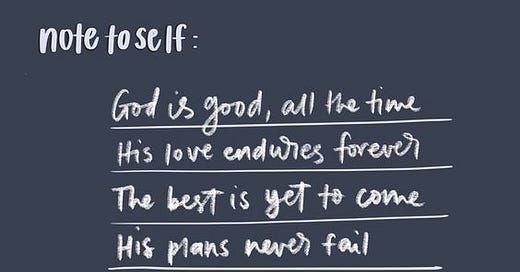 note to self:
God is good, all the time
His love endures forever
The best is yet to come
His plans never fail